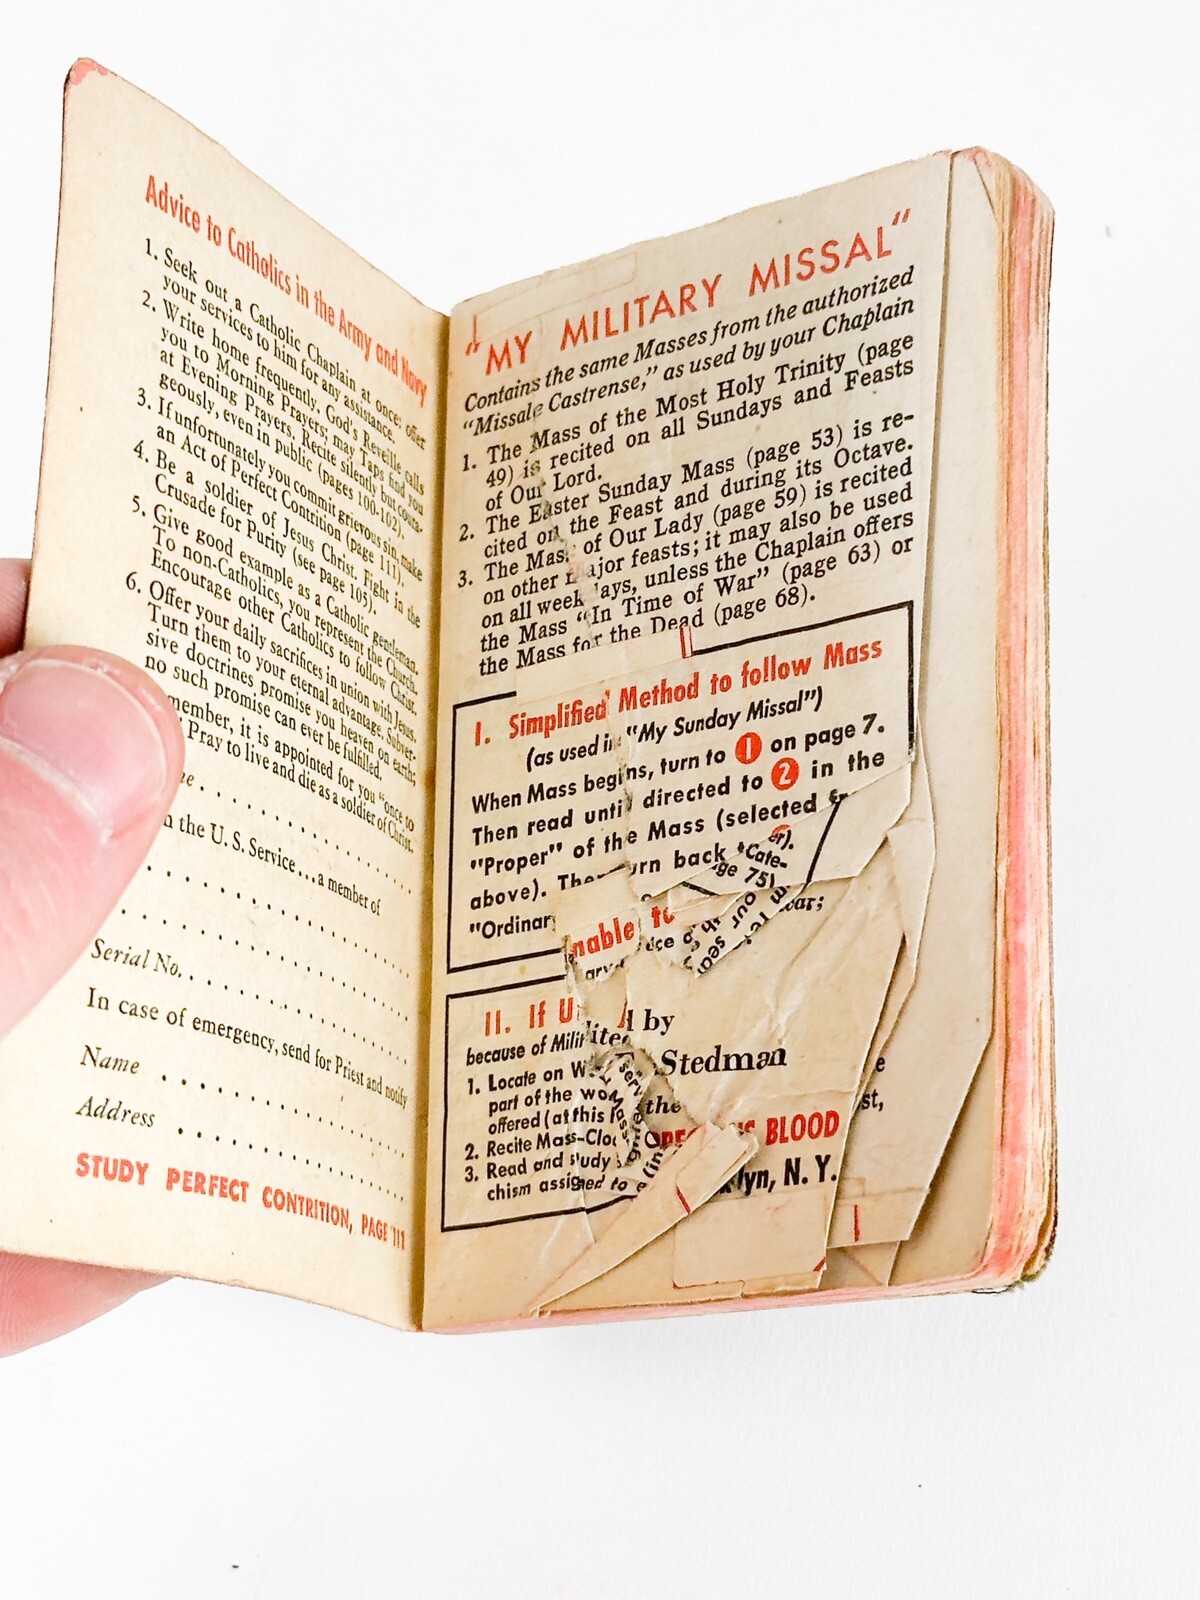 Advice to Catholics in the Army and Navy
1. Seek out a Catholic Chaplain at once; offer
your services to him for any assistance.
2. Write home frequently. God's Reveille calls
you to Morning Prayers; may Taps find you
at Evening Prayers. Recite silently but coura-
geously, even in public (pages 100-102).
3. If unfortunately you commit grievous sin, make
an Act of Perfect Contrition (page 111).
4. Be a soldier of Jesus Christ. Fight in the
Crusade for Purity (see page 105).
5. Give good example as a Catholic gentleman.
To non-Catholics, you represent the Church.
Encourage other Catholics to follow Christ.
6. Offer your daily sacrifices in union with Jesus.
Turn them to your eternal advantage. Subver-
sive doctrines promise you heaven on earth;
no such promise can ever be fulfilled.
member, it is appointed for you "once to
Pray to live and die as a soldier of Christ.
the U. S. Service...a member of
Serial No.
In case of emergency, send for Priest and notify
Name
Address
STUDY PERFECT CONTRITION, PAGE 111
"MY MILITARY MISSAL"
Contains the same Masses from the authorized
"Missale Castrense," as used by your Chaplain
1. The Mass of the Most Holy Trinity (page
49) is recited on all Sundays and Feasts
of Our Lord.
2. The Easter Sunday Mass (page 53) is re-
cited on the Feast and during its Octave.
3. The Mass of Our Lady (page 59) is recited
on other major feasts; it may also be used
on all week days, unless the Chaplain offers
the Mass "In Time of War" (page 63) or
the Mass for the Dead (page 68).
I. Simplified Method to follow Mass
(as used in "My Sunday Missal")
When Mass begins, turn to 1 on page 7.
Then read until directed to 2 in the
"Proper" of the Mass (selected
above). Then turn back
"Ordinar
er).
Cate-
ge 75)
our
nable to
II. If U
because of Milit
1. Locate on W
part of the wo
offered (at this
2. Recite Mass-Clo
3. Read and study
chism assigned to
by
Stedman
the
BLOOD
lyn, N. Y.
st,